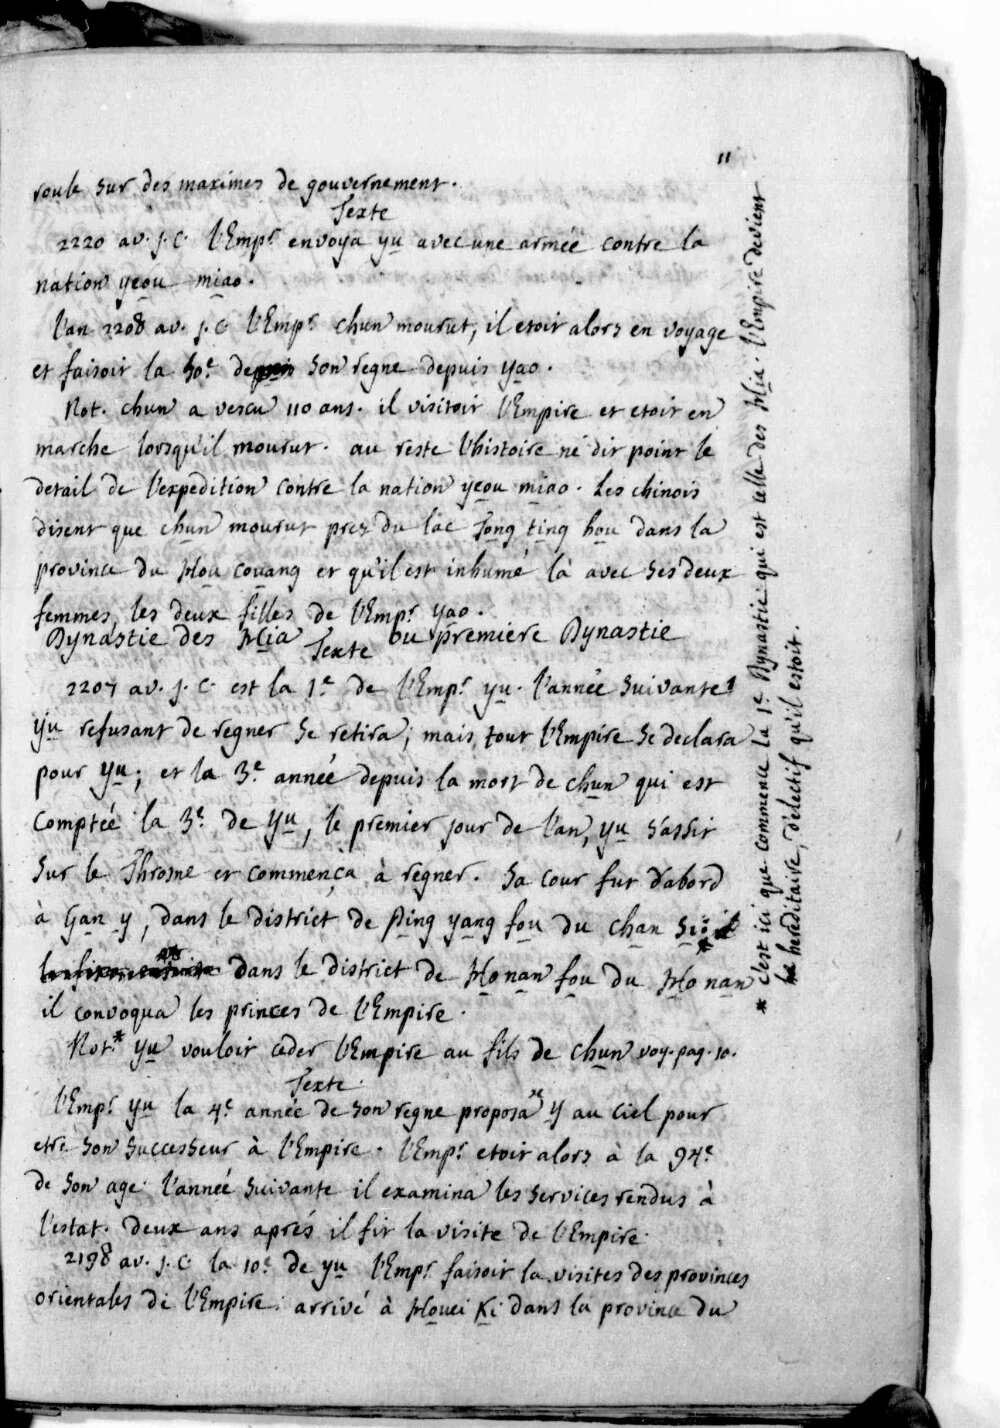 11
roule sur des maximes de gouvernement.
Texte
2220 av. j. C. l'Emp.r envoya yu avec une armée contre la
nation yeou miao.
l'an 2208 av. j. C l'Emp.r chun mourut, il etoit alors en voyage
et faisoit la 50.e de son regne depuis yao.
Not. chun a vescu 110 ans. il visitoit l'Empire et etoit en
marche lorsqu'il mourut. au reste l'histoire ne dit point le
detail de l'expedition contre la nation yeou miao. Les chinois
disent que chun mourut prez du lac Tong ting hou dans la
province du Hou couang et qu'il est inhumé là avec ses deux
femmes, les deux filles de l'Emp.r yao.
Dynastie des Hia ou premiere Dynastie
Texte
2207 av. j. C. est la 1.e de l'Emp.r yu. l'année suivante
yu refusant de regner se retira; mais tout l'Empire se declara
pour yu; et la 3.e année depuis la mort de chun qui est
comptée la 3.e de yu, le premier jour de l'an, yu s'assit
sur le Throsne et commença à regner. sa cour fut d'abord
à Gan y, dans le district de Ping yang fou du chan si
* dans le district de Ho nan fou du Ho nan
il convoqua les princes de l'Empire.
Not.* yu vouloit ceder l'Empire au fils de chun voy. pag. 10.
Texte
l'Emp.r yu la 4.e année de son regne proposa y au Ciel pour
etre son successeur à l'Empire. l'Emp.r etoit alors à la 94.e
de son age. l'année suivante il examina les services rendus à
l'estat. deux ans aprés il fit la visite de l'Empire.
2198 av. j. C. la 10.e de yu l'Emp.r faisoit la visites des provinces
orientales de l'Empire. arrivé à Houei Ki dans la province du
* c'est ici que commence la 1.e Dynastie qui est celle des Hia. l'Empire devient
hereditaire, d'electif qu'il estoit.